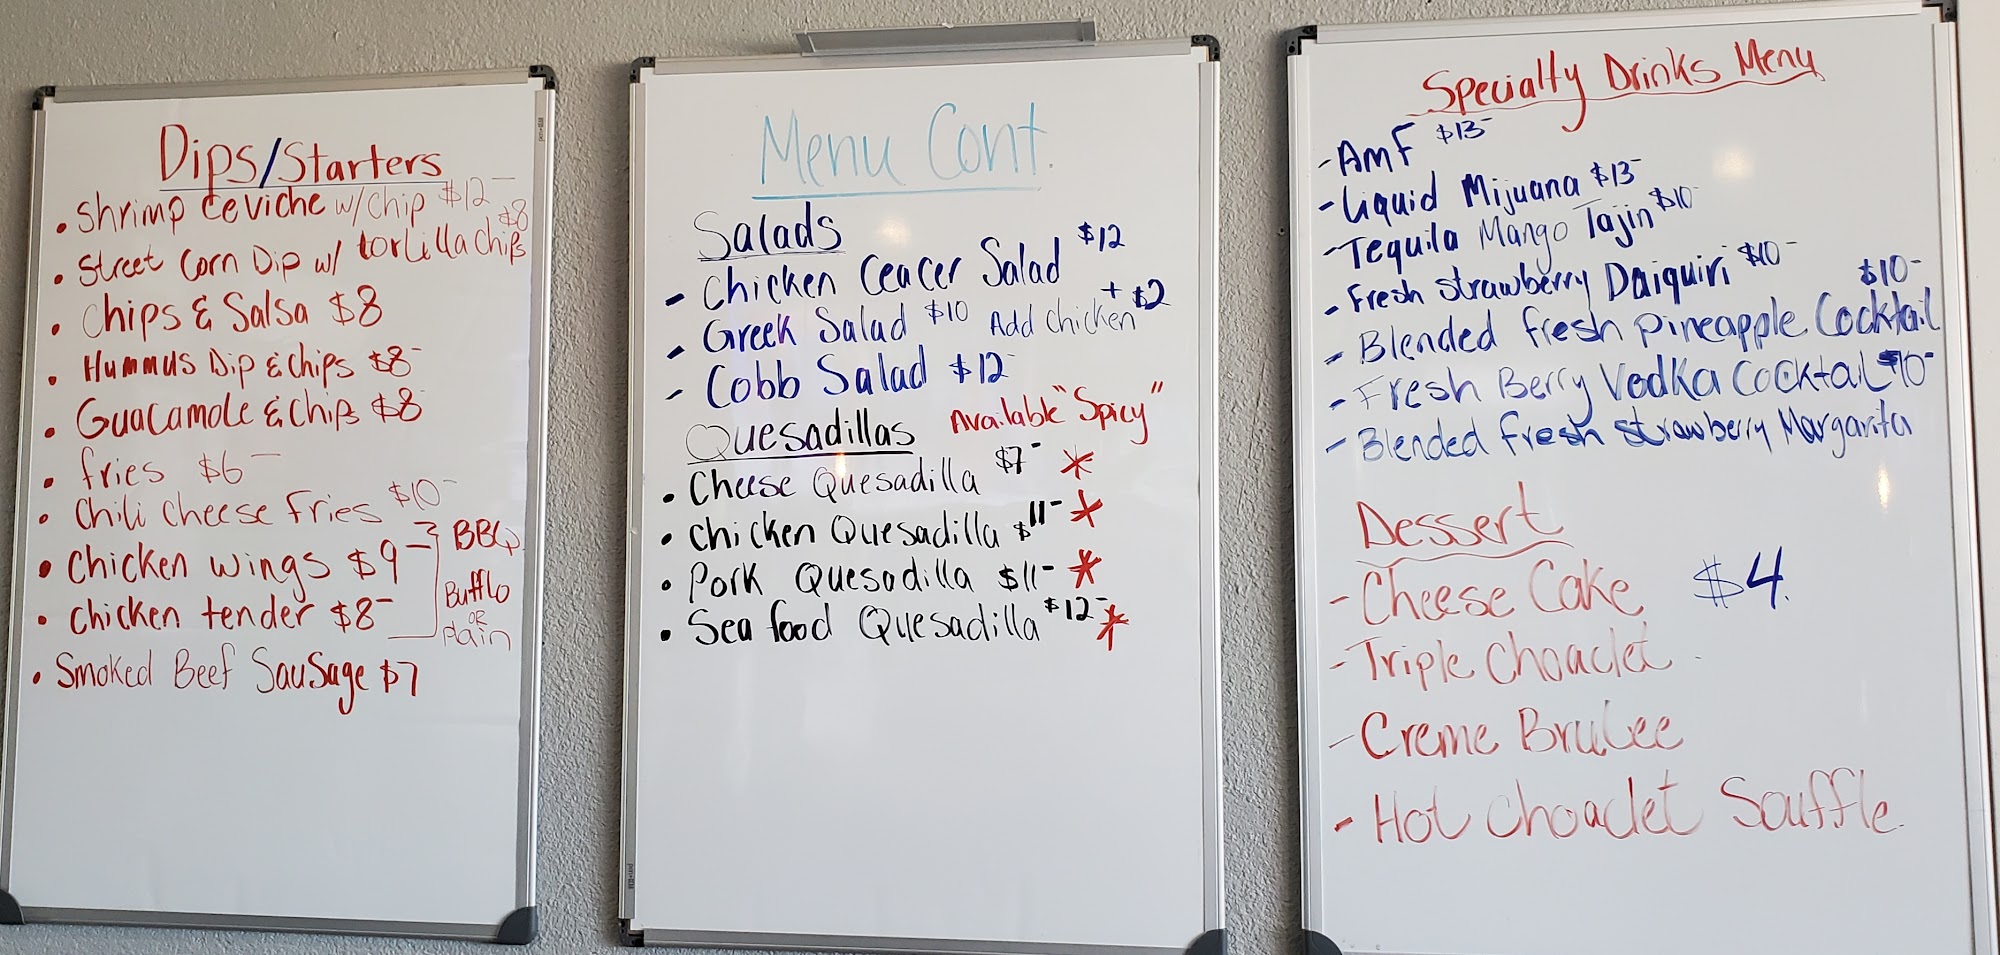 Dips/Starters
• Shrimp Ceviche w/chip $12-
• Street Corn Dip w/ tortilla chips $8
• Chips & Salsa $8
• Hummus Dip & chips $8-
• Guacamole & chips $8-
• fries $6-
• Chili cheese fries $10-
• Chicken wings $9-
• Chicken tender $8-
BBQ
Bufflo
OR
plain
• Smoked Beef Sausage $7
Menu Cont.
Salads
- Chicken Ceacer Salad $12
- Greek Salad $10 Add chicken + $2
- Cobb Salad $12-
Quesadillas Available "Spicy"
• Cheese Quesadilla $7- *
• Chicken Quesadilla $11- *
• Pork Quesadilla $11- *
• Sea food Quesadilla $12- *
Specialty Drinks Menu
- AMF $13-
- Liquid Mijuana $13-
- Tequila Mango Tajin $10-
- Fresh strawberry Daiquiri $10-
- Blended fresh pineapple Cocktail $10-
- Fresh Berry Vodka Cocktail $10-
- Blended fresh strawberry Margarita
Dessert
- Cheese Cake $4.
- Triple Choaclet
- Creme Brulee
- Hot Choaclet Souffle